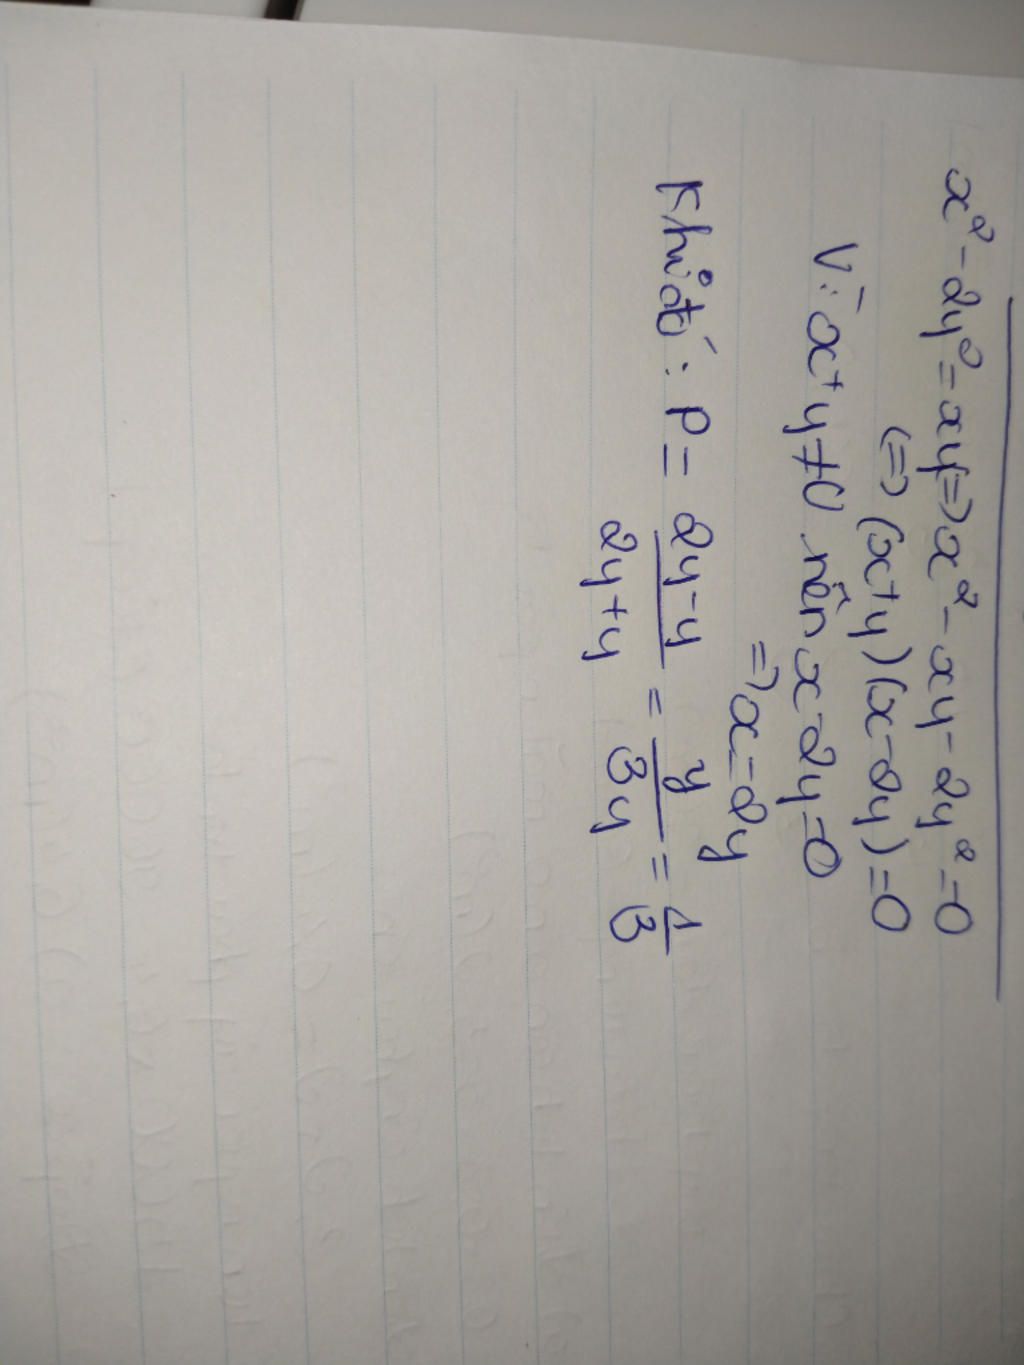 x² - 2y² = xy => x² - xy - 2y² = 0
(=) (x+y)(x-2y) = 0
Vì x+y ≠ 0 nên x-2y=0
=> x = 2y
Khi đó : P = 2y-y/2y+y = y/3y = 1/3